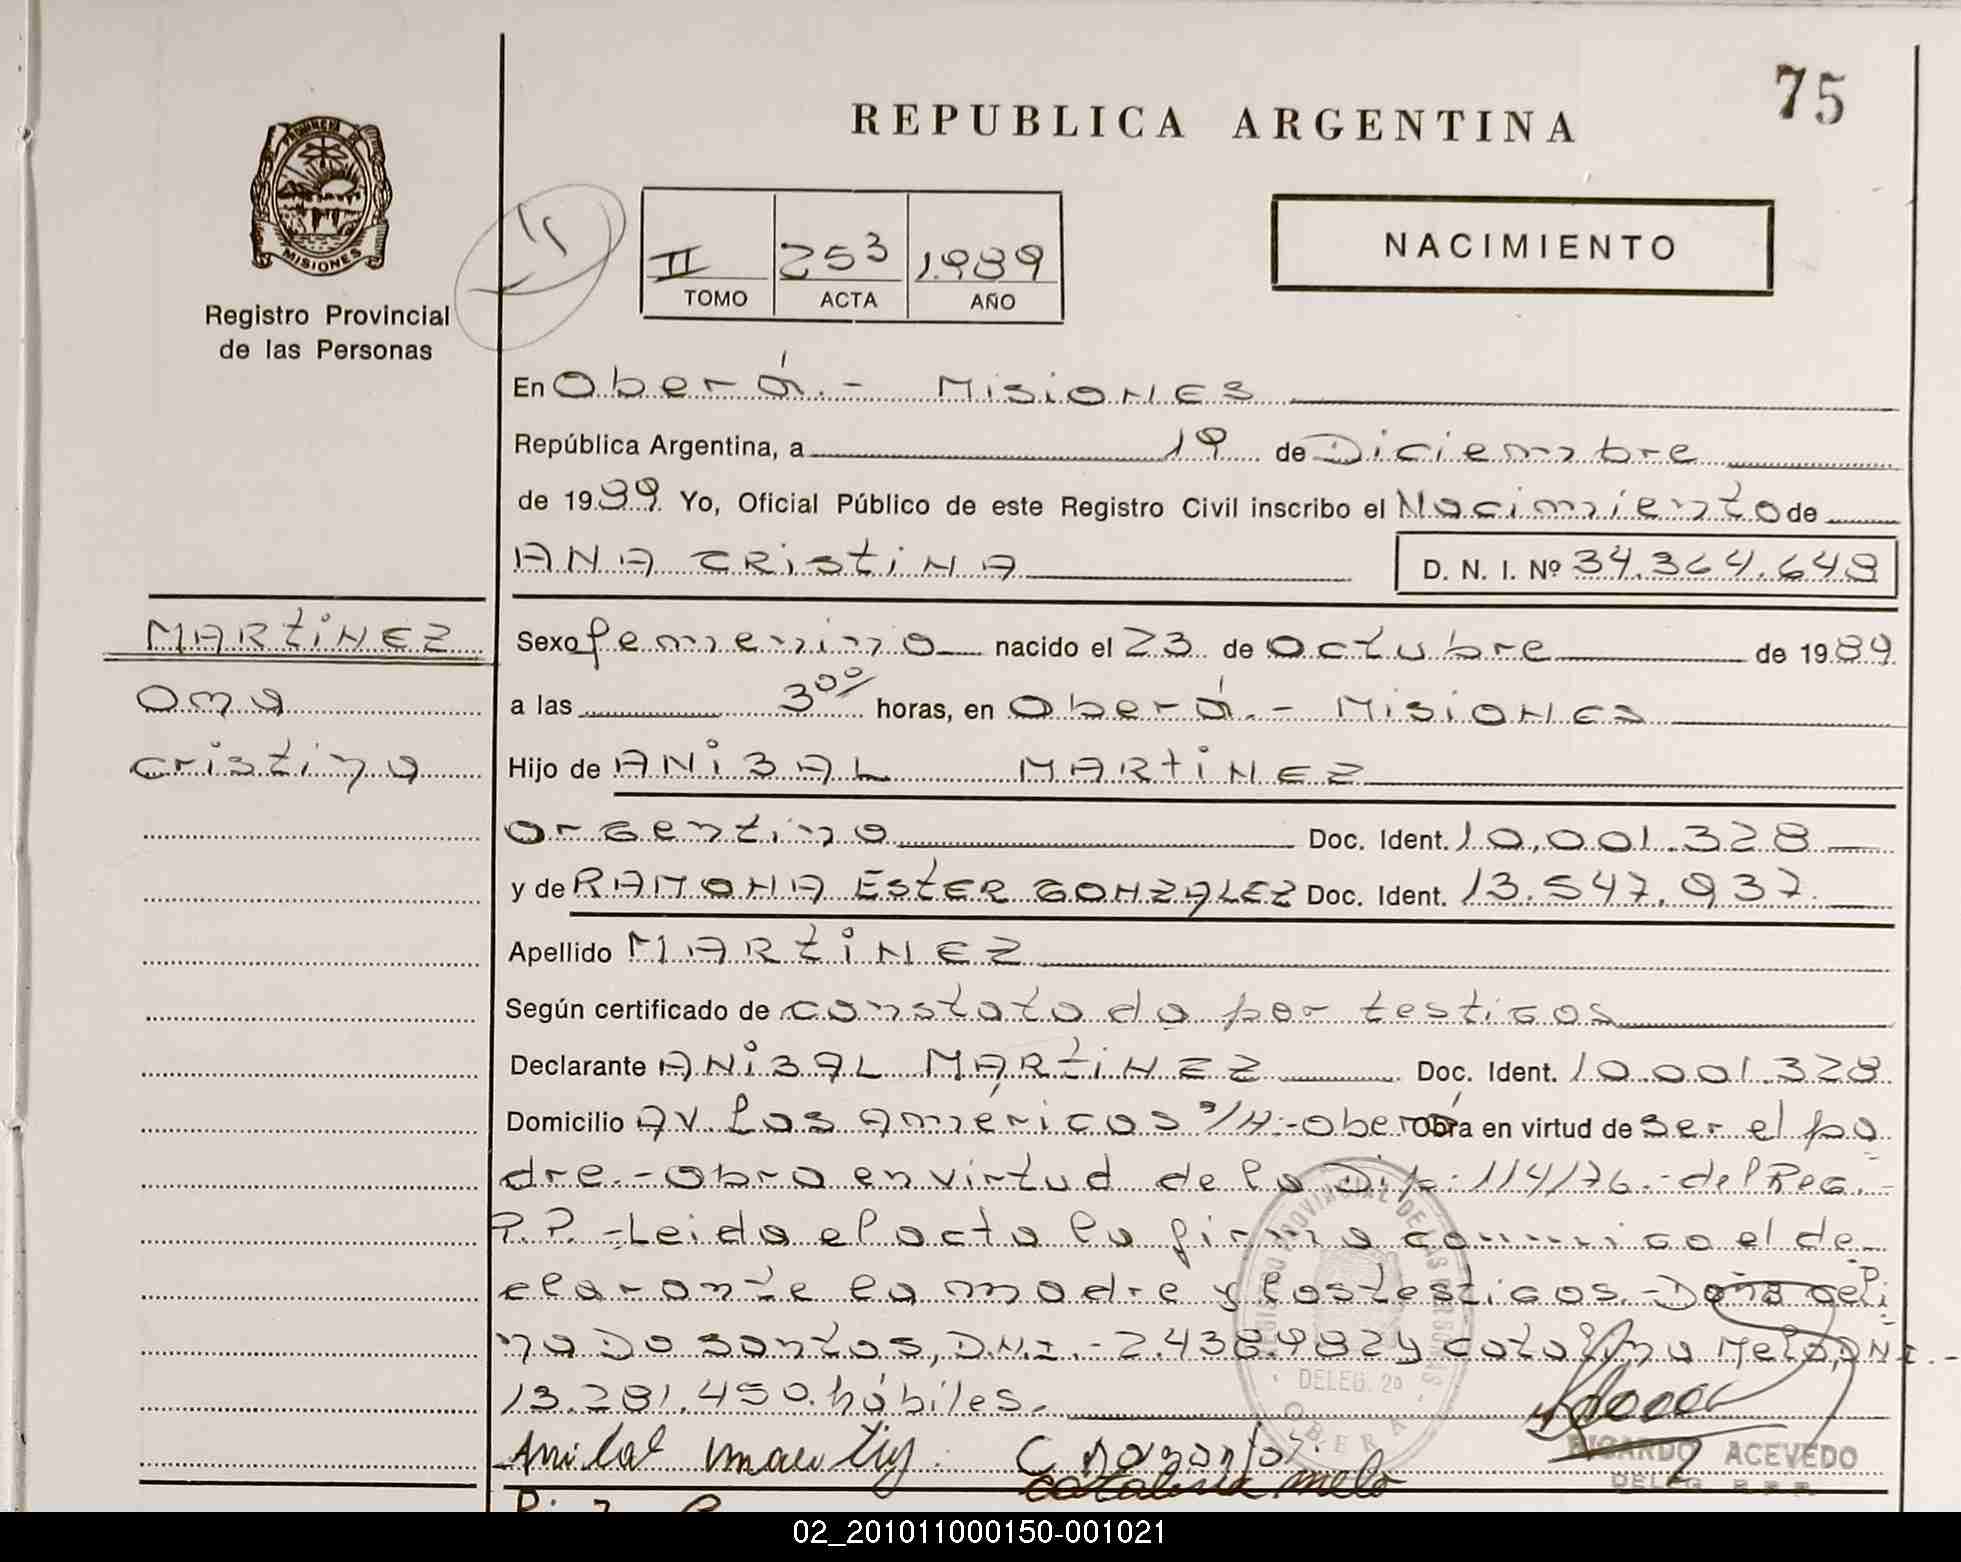 75
REPUBLICA ARGENTINA
PROVINCIA DE
MISIONES
Registro Provincial
de las Personas
II 253 1.989
TOMO ACTA AÑO
NACIMIENTO
En Oberá.- Misiones
República Argentina, a 19 de Diciembre
de 1989. Yo, Oficial Público de este Registro Civil inscribo el Nacimiento de
ANA CRistiNA D. N. I. Nº 34.364.648
MARtiNEZ
Ana
cristina
Sexo femenino nacido el 23 de Octubre de 1989
a las 3⁰⁰ horas, en Oberá.- Misiones
Hijo de ANiBAL MARtiNEZ
argentina Doc. Ident. 10.001.328
y de RAMONA EstER GONZALEZ Doc. Ident. 13.547.937.
Apellido MARtiNEZ
Según certificado de constatada por testigos
Declarante ANiBAL MARtiNEZ Doc. Ident. 10.001.328
Domicilio AV. Las Américas s/N.-Oberá Obra en virtud de ser el pa
dre.-Obra en virtud de la Dip: 114/76.-del Reg.-
P.P.-Leida el acta la firma conmigo el de-
clarante la madre y los testigos.-Doña celi
na Do santos, D.N.I.-2.438.982 y catalina Melo, D.N.I.-
13.281.450. hábiles.-
REGISTRO PROVINCIAL DE LAS PERSONAS
DELEG. 2ª
OBERA
Anibal Martinez
catalina melo
RICARDO ACEVEDO
DELEG. R.P.P.
02_201011000150-001021